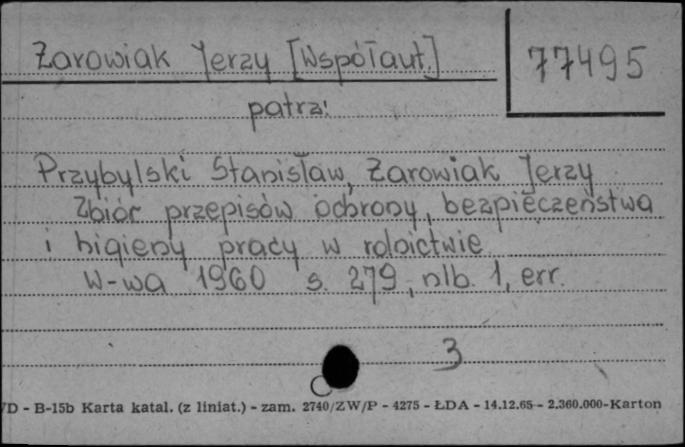 Żarowiak Jerzy [Współaut.]
77495
patrz:
Przybylski Stanisław, Żarowiak Jerzy
Zbiór przepisów ochrony, bezpieczeństwa
i higieny pracy w rolnictwie
W-wa 1960 s. 279, nlb. 1, err.
3
/D - B-15b Karta katal. (z liniat.) - zam. 2740/ZW/P - 4275 - ŁDA - 14.12.65 - 2.360.000-Karton